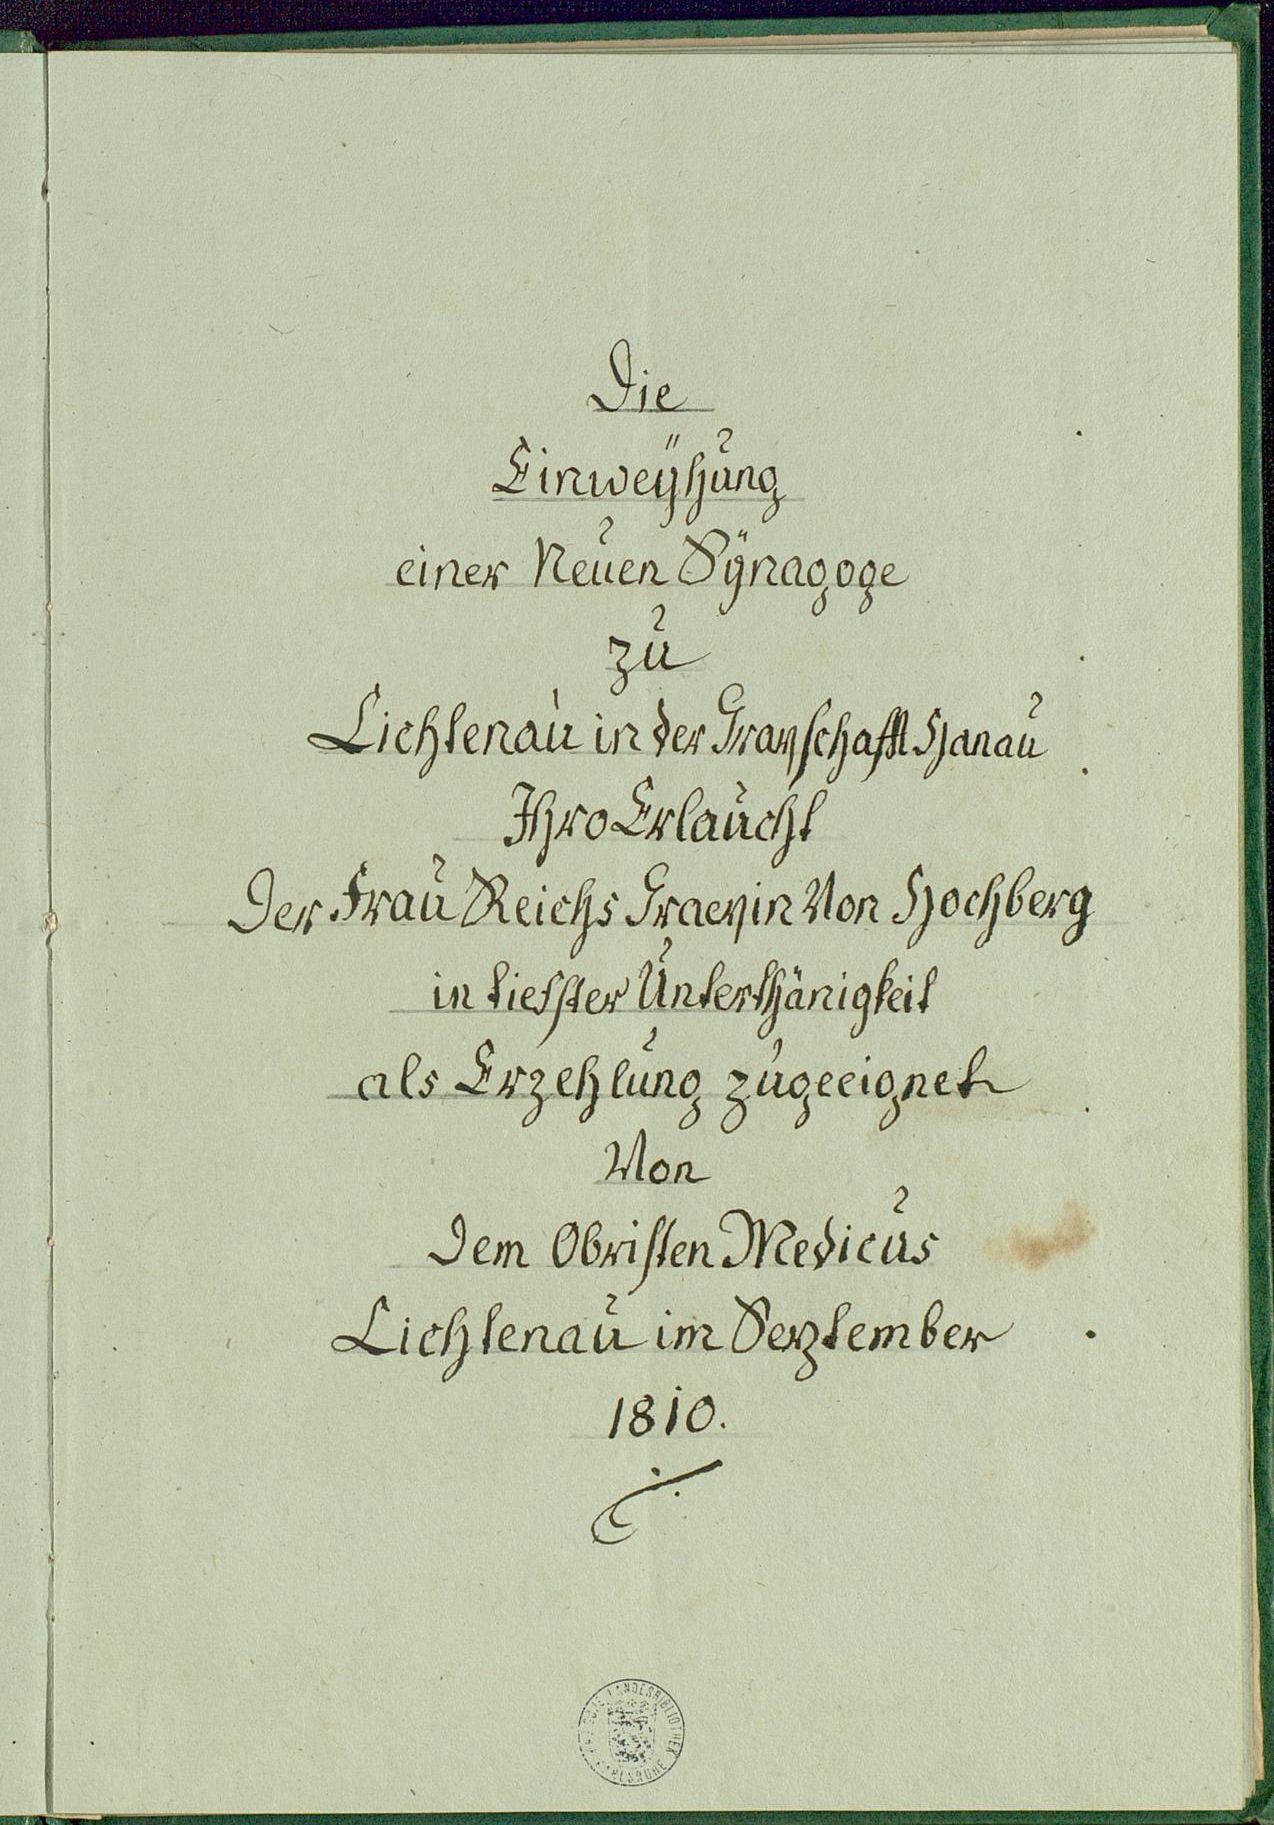 Die
Einweÿhung
einer Neuen Sÿnagoge
zu
Lichtenau in der Gravschafft Hanau
Ihro Erlaucht
Der Frau Reichs Graevin Von Hochberg
in tiefster Unterthänigkeit
als Erzehlung zugeeignet
Von
Dem Obristen Medicus
Lichtenau im September
1810.
BADISCHE LANDESBIBLIOTHEK
KARLSRUHE